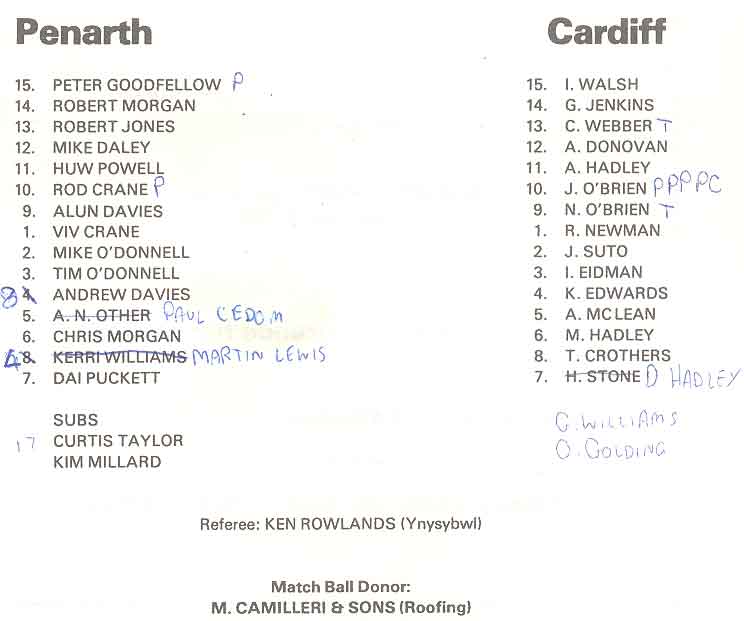 Penarth
15. PETER GOODFELLOW P
14. ROBERT MORGAN
13. ROBERT JONES
12. MIKE DALEY
11. HUW POWELL
10. ROD CRANE P
9. ALUN DAVIES
1. VIV CRANE
2. MIKE O'DONNELL
3. TIM O'DONNELL
8 4. ANDREW DAVIES
5. A. N. OTHER PAUL CEDOM
6. CHRIS MORGAN
4 8. KERRI WILLIAMS MARTIN LEWIS
7. DAI PUCKETT
SUBS
17 CURTIS TAYLOR
KIM MILLARD
Cardiff
15. I. WALSH
14. G. JENKINS
13. C. WEBBER T
12. A. DONOVAN
11. A. HADLEY
10. J. O'BRIEN P P P P C
9. N. O'BRIEN T
1. R. NEWMAN
2. J. SUTO
3. I. EIDMAN
4. K. EDWARDS
5. A. McLEAN
6. M. HADLEY
8. T. CROTHERS
7. H. STONE D HADLEY
G. WILLIAMS
O. GOLDING
Referee: KEN ROWLANDS (Ynysybwl)
Match Ball Donor:
M. CAMILLERI & SONS (Roofing)